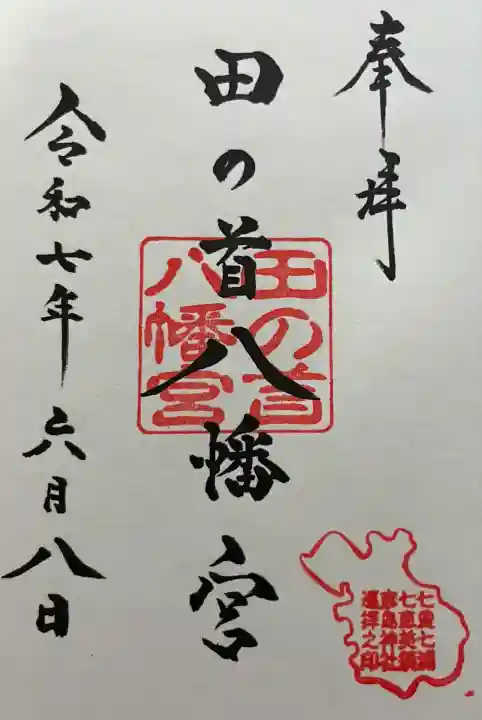 奉拝
田の首八幡宮
田の首
八幡宮
令和七年六月八日
遥拝之印